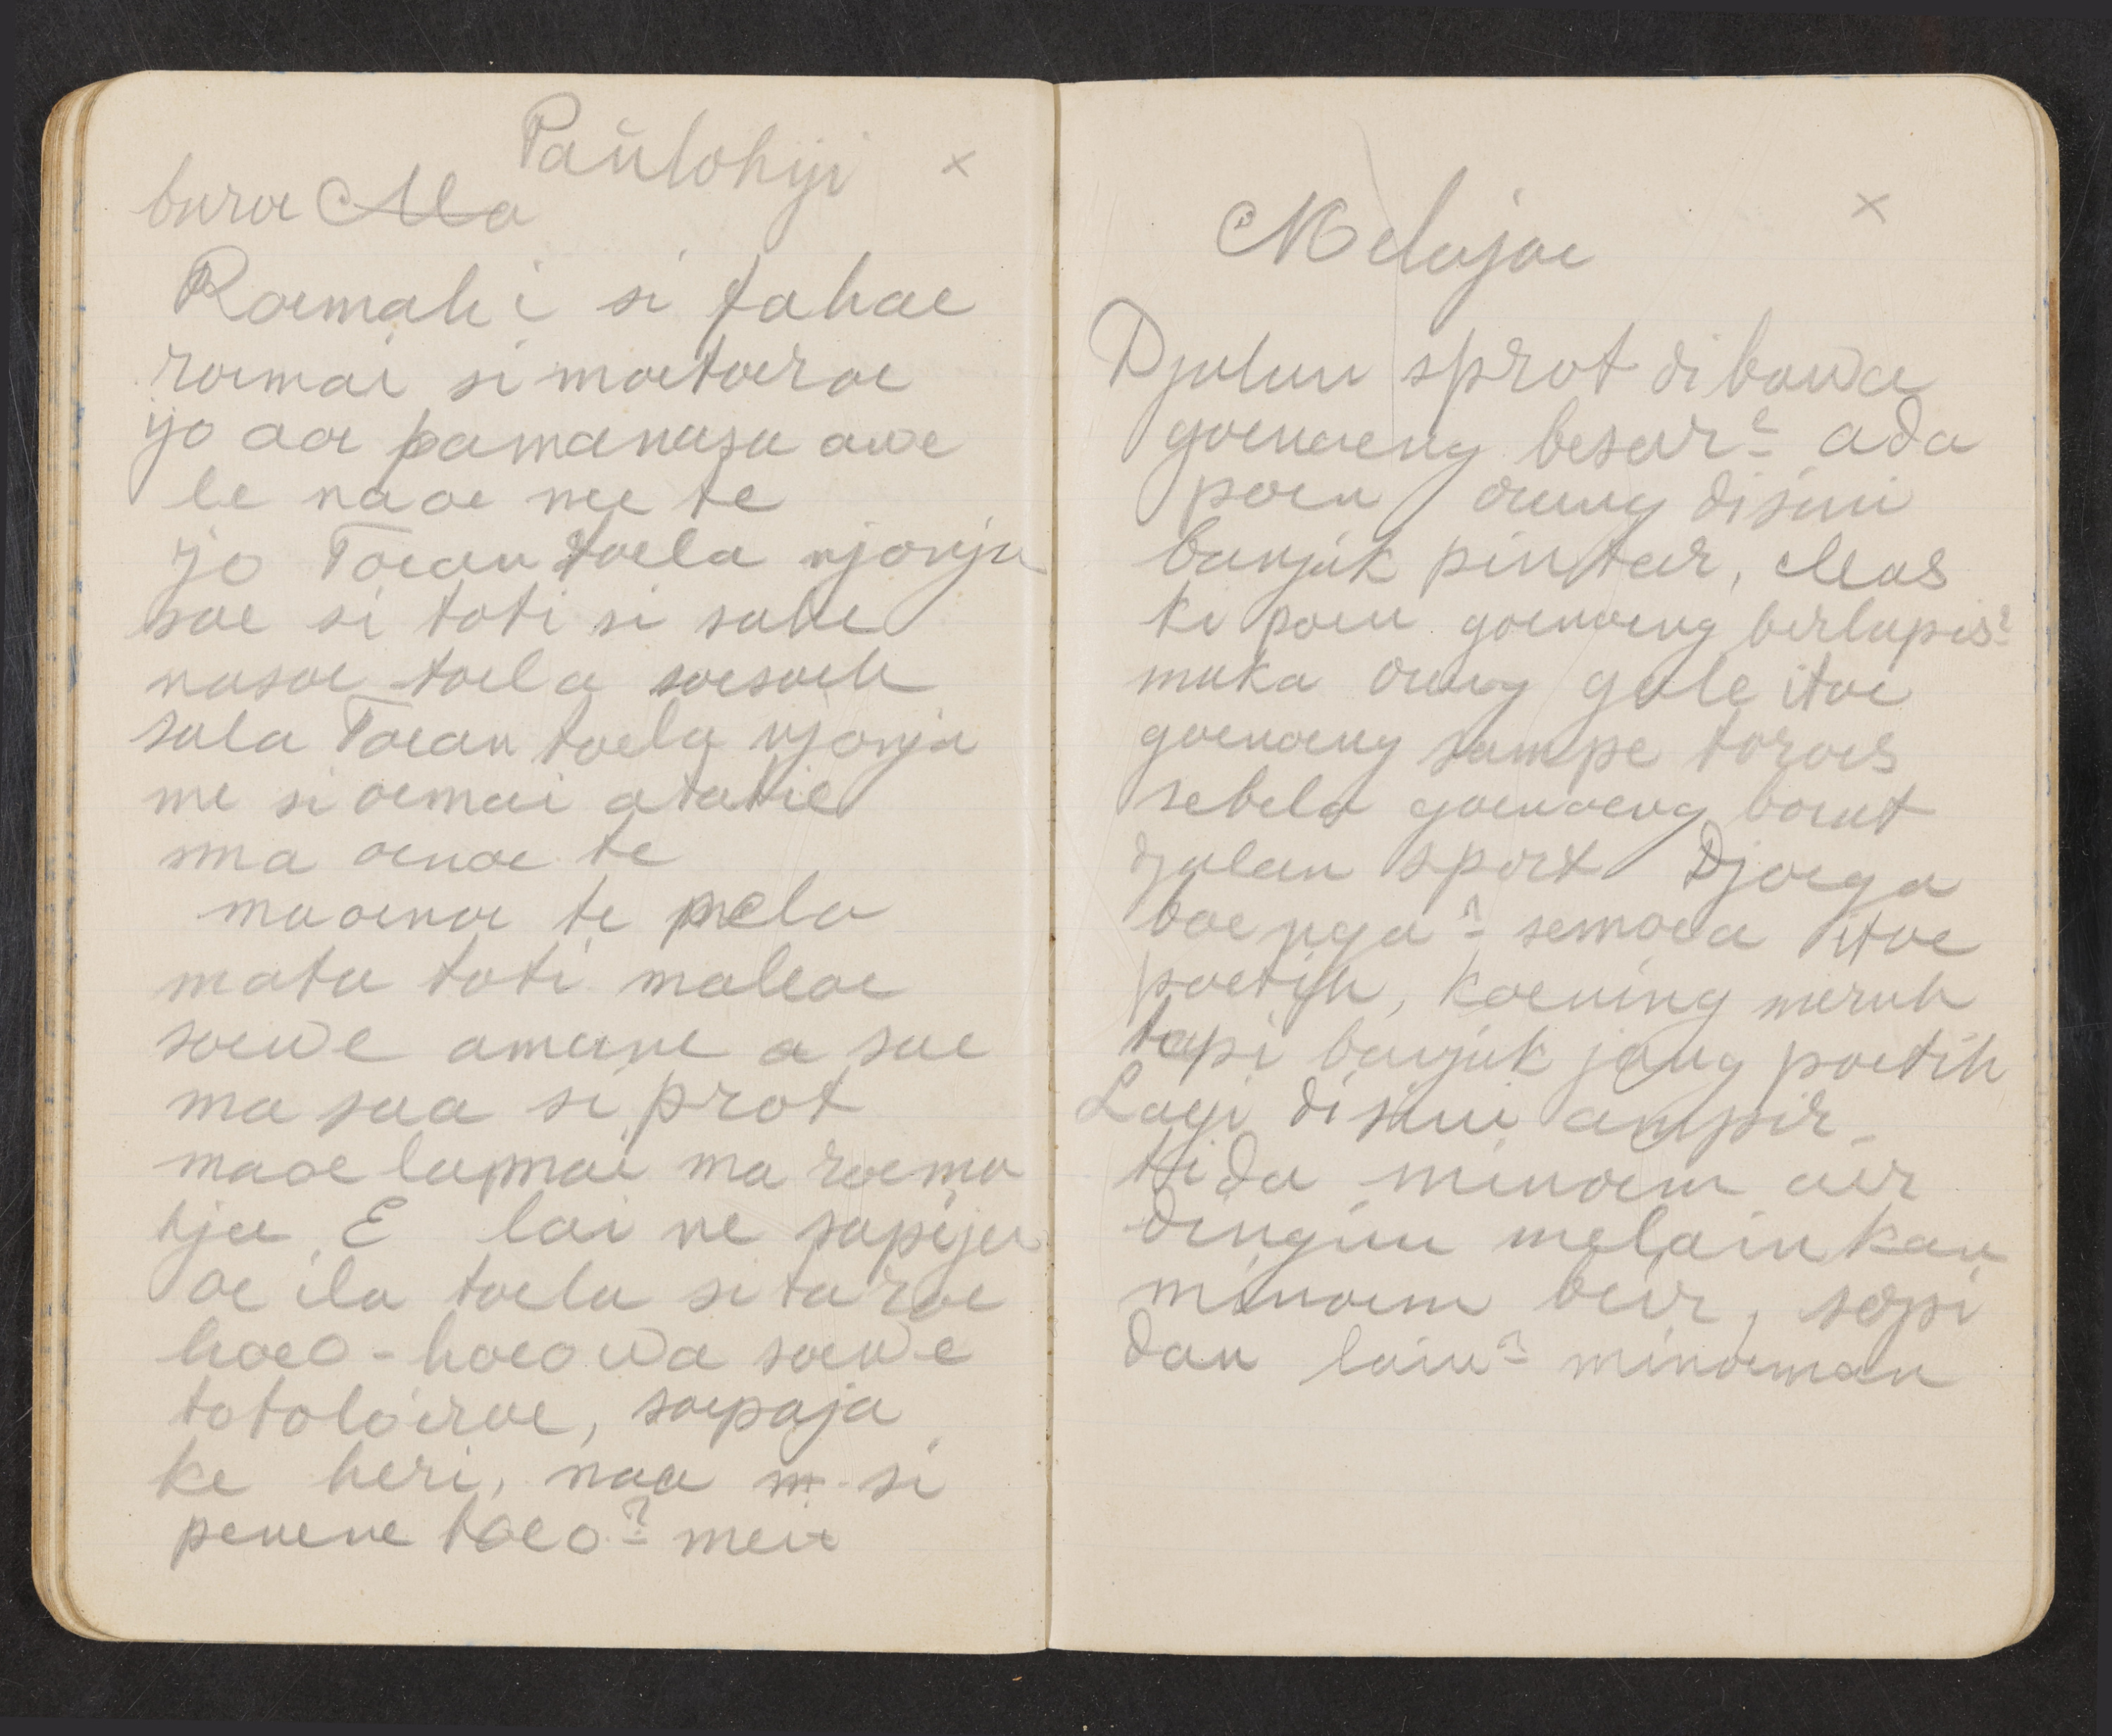 Paŭlohiji ×
barœ Ma
Roemah i si tahae
roemai si moetoeroe
ijo aoe pamanasa awe
le naoe me te
ijo Toean toela njonja
soe si toti si sahe
nasoe toela soesoeh
sala Toean toela njonja
me si oemai atahie
ma oenoe te
maoenoe te mela
mata toti maleoe
soewe amane a sae
ma saa si prot
maoe lapmai ma roema
tja. E lai ne sapija
oe ila toela si taroe
hoeo-hoeowa soewe
totoloeroe, soepaja
ke heri, naa si
penene toeo² meix
Melajoe ×
Djalan sprot di bawa
goenoeng besar² ada
poen orang disini
banjak pintar, Mas
ki poen goenoeng berlapis²
maka orang gale itoe
goenoeng sampe toroes
sebela goenoeng boeat
djalan sport Djoega
boenga² semoea itoe
poetih, koening merah
tapi banjak jang poetih
Lagi disini ampir
tida minoem aer
dingin melainkan
minoem beir, sopi
dan lain² minoeman